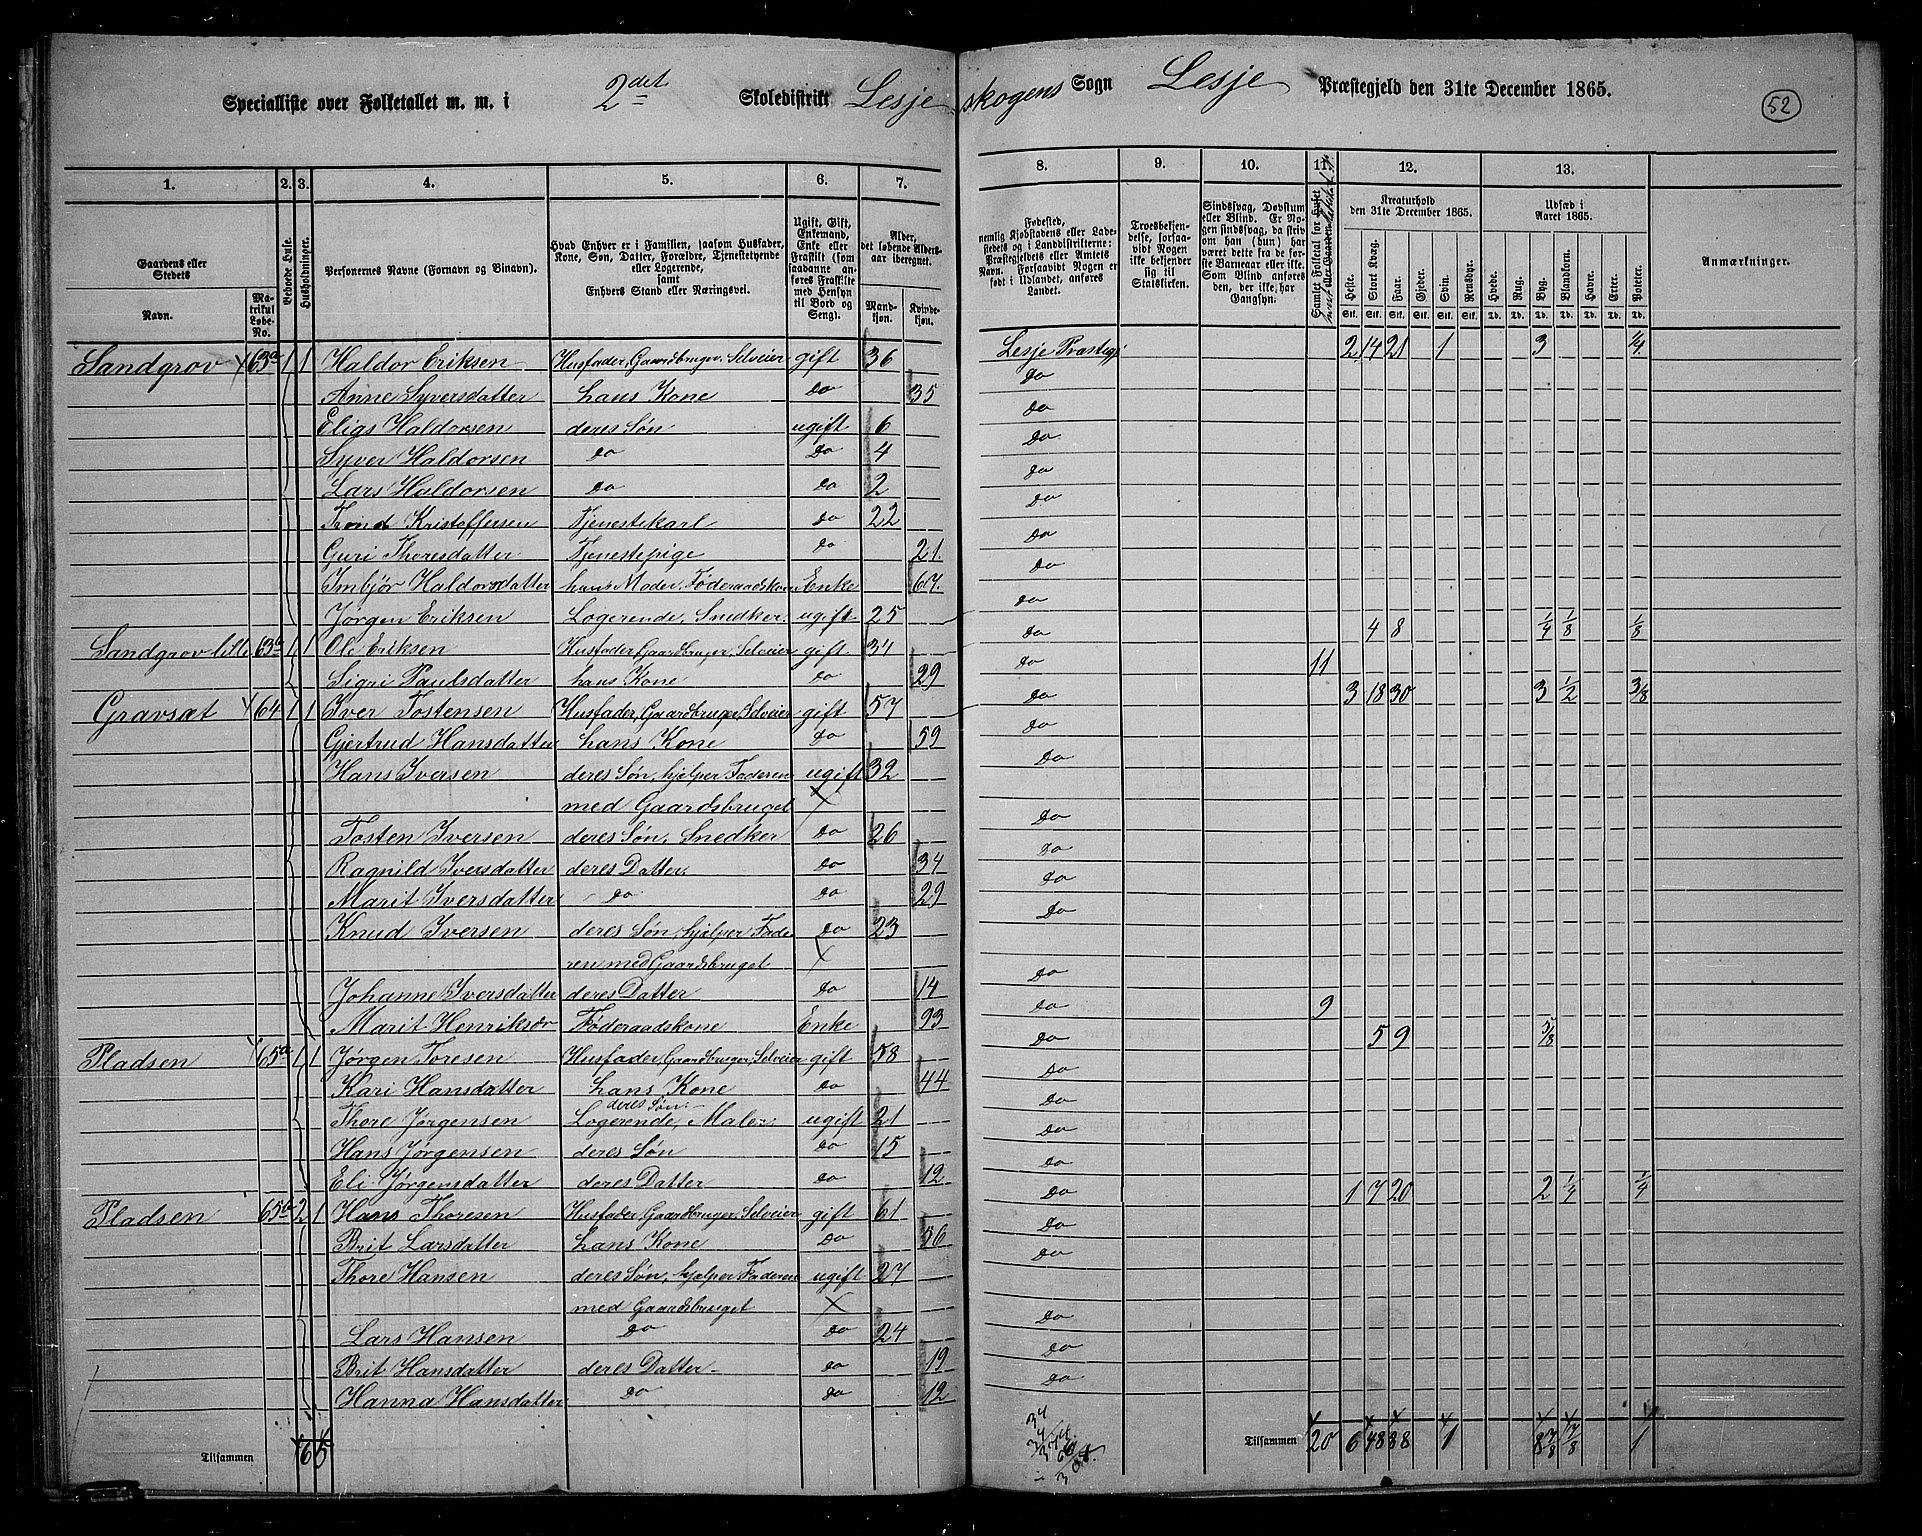 Specialliste over Folketallet m. m. i 2det Skoledistrikt Lesjeskogens Sogn Lesje Præstegjeld den 31te December 1865.
52
1. 2. 3. 4. 5. 6. 7. 8. 9. 10. 11. 12. 13.
Gaardens eller Stedets
Navn. Matrikul Løbe-No.
Beboede Huse.
Husholdninger.
Personernes Navne (Fornavn og Binavn).
Hvad Enhver er i Familien, saasom Husfader, Kone, Søn, Datter, Forældre, Tjenestetyende eller Logerende, samt Enhvers Stand eller Næringsvei.
Ugift, Gift, Enkemand, Enke eller Fraskilt (som saadanne anføres Fraskilte med Hensyn til Bord og Seng).
Alder, det løbende Aldersaar iberegnet.
Mandkjøn. Kvindekjøn.
Fødested, nemlig Kjøbstadens eller Ladestedets og i Landdistrikterne: Præstegjeldets eller Amtets Navn. Forsaavidt Nogen er født i Udlandet, anføres Landet.
Troesbekjendelse, forsaavidt Nogen ikke bekjender sig til Statskirken.
Sindssvag, Døvstum eller Blind. Er Nogen sindssvag, da skrives om han (hun) har været dette fra før Barneaar eller ikke. Som Blind anføres den, der ikke, har Gangsyn.
Samlet Folketal for
Kreaturhold den 31te December 1865.
Heste. Stort Kvæg. Faar. Gjeder. Svin. Rensdyr.
Udsæd i Aaret 1865.
Hvede. Rug. Byg. Blandkorn. Havre. Erter. Poteter.
Anmærkninger.
Sandgrov 63a 1 1 Haldor Eriksen Husfader, Gaardbruger, Selveier gift 36 Lesje Præstegj 2 14 21 1 3 1/4
Anne Syversdatter hans Kone Do 35 Do
Eligs Haldorsen deres Søn ugift 6 Do
Syver Haldorsen Do Do 4 Do
Lars Haldorsen Do Do 2 Do
Trond Kristoffersen Tjenestekarl Do 22 Do
Guri Thoresdatter Tjenestepige Do 21 Do
Imbjør Haldorsdatter hans Moder, Føderaadskone Enke 67 Do
Jørgen Eriksen Logerende, Snedker ugift 25 Do
Sandgrov lille 63b 1 1 Ole Eriksen Husfader, Gaardbruger, Selveier gift 34 Do 4 8 1/4 1/8 1/8
Sigri Paulsdatter hans Kone Do 29 Do 11
Gravsæt 64 1 1 Iver Tostensen Husfader, Gaardbruger, Selveier gift 57 Do 3 18 30 3 1/2 3/8
Gjertrud Hansdatter hans Kone Do 59 Do
Hans Iversen deres Søn, hjelper Faderen ugift 32 Do
med Gaardsbruget X
Tosten Iversen deres Søn, Snedker Do 26 Do
Ragnild Iversdatter deres Datter Do 34 Do
Marit Iversdatter Do Do 29 Do
Knud Iversen deres Søn, hjelper Fade Do 23 Do
ren med Gaardsbruget X
Johanne Iversdatter deres Datter Do 14 Do
Marit Henriksdr Føderaadskone Enke 93 Do 9
Pladsen 65a 1 1 Jørgen Toresen Husfader, Gaardbruger, Selveier gift 58 Do 5 9 5/8
Kari Hansdatter hans Kone Do 44 Do
deres Søn
Thore Jørgensen Logerende, Maler ugift 21 Do
Hans Jørgensen deres Søn Do 15 Do
Eli Jørgensdatter deres Datter Do 12 Do
Pladsen 65a 2 1 Hans Thoresen Husfader, Gaardbruger, Selveier gift 61 Do 1 7 20 2 1/4 1/4
Brit Larsdatter hans Kone Do 56 Do
Thore Hansen deres Søn, hjelper Faderen ugift 27 Do
med Gaardsbruget X
Lars Hansen Do Do 24 Do
Brit Hansdatter deres Datter Do 19 Do
Hanna Hansdatter Do Do 12 Do
Tilsammen 6 5 Tilsammen 20 6 48 88 1 8 7/8 7/8 1